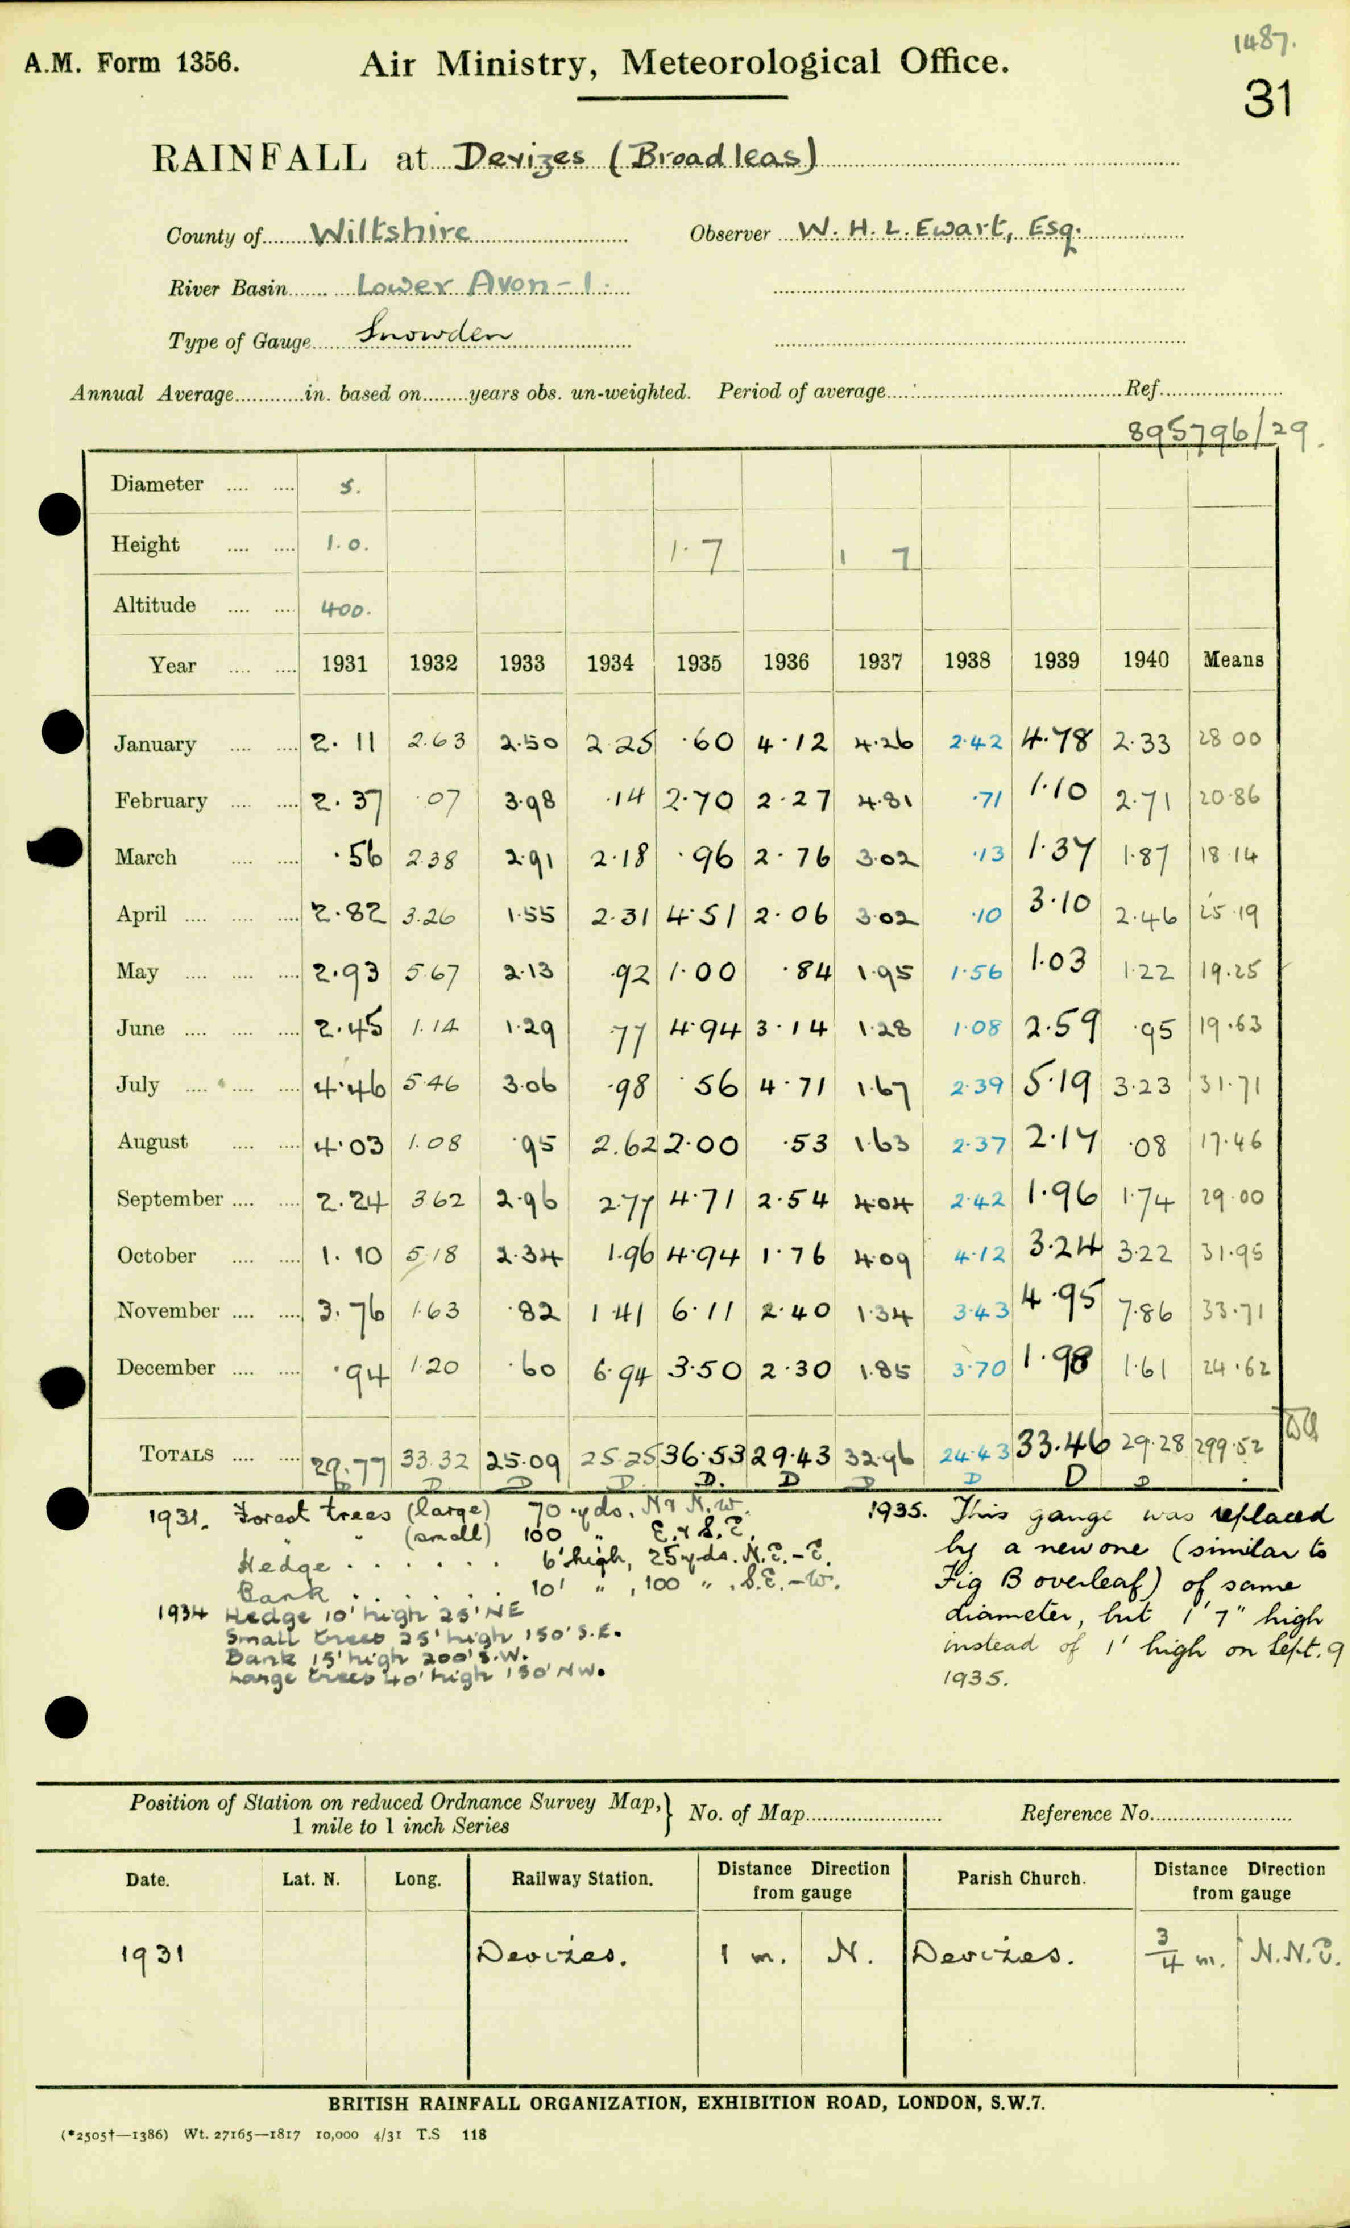 1487.
A.M. Form 1356. Air Ministry, Meteorological Office.
31
RAINFALL at Devizes (Broadleas)
County of Wiltshire Observer W. H. L. Ewart, Esq.
River Basin Lower Avon - 1.
Type of Gauge Snowden
Annual Average in. based on years obs. un-weighted. Period of average Ref.
895796/29.
Diameter 5.
Height 1.0. 1.7 1 7
Altitude 400.
Year 1931 1932 1933 1934 1935 1936 1937 1938 1939 1940 Means
January 2.11 2.63 2.50 2.25 .60 4.12 4.26 2.42 4.78 2.33 28 00
February 2.37 .07 3.98 .14 2.70 2.27 4.81 .71 1.10 2.71 20.86
March .56 2.38 2.91 2.18 .96 2.76 3.02 .13 1.37 1.87 18.14
April 2.82 3.26 1.55 2.31 4.51 2.06 3.02 .10 3.10 2.46 25.19
May 2.93 5.67 2.13 .92 1.00 .84 1.95 1.56 1.03 1.22 19.25
June 2.45 1.14 1.29 .77 4.94 3.14 1.28 1.08 2.59 .95 19.63
July 4.46 5.46 3.06 .98 .56 4.71 1.67 2.39 5.19 3.23 31.71
August 4.03 1.08 .95 2.62 2.00 .53 1.63 2.37 2.17 .08 17.46
September 2.24 3.62 2.96 2.77 4.71 2.54 4.04 2.42 1.96 1.74 29.00
October 1.10 5.18 2.34 1.96 4.94 1.76 4.09 4.12 3.24 3.22 31.95
November 3.76 1.63 .82 1.41 6.11 2.40 1.34 3.43 4.95 7.86 33.71
December .94 1.20 .60 6.94 3.50 2.30 1.85 3.70 1.98 1.61 24.62
TOTALS 29.77 33.32 25.09 25.25 36.53 29.43 32.96 24.43 33.46 29.28 299.52
D D D D. D D D D D
1931. Forest trees (large) 70 yds. N & N.W.
" " (small) 100 " E. & S.E.
Hedge . . . . . . 6' high, 25 yds. N.E. - E.
Bank . . . . . . 10' " , 100 " . S.E. - W.
1934 Hedge 10' high 25' NE
Small trees 25' high 150' S.E.
Bank 15' high 200' S.W.
Large trees 40' high 150' NW.
1935. This gauge was replaced
by a new one (similar to
Fig B overleaf) of same
diameter, but 1' 7" high
instead of 1' high on Sept. 9
1935.
Position of Station on reduced Ordnance Survey Map,} No. of Map Reference No.
1 mile to 1 inch Series
Date. Lat. N. Long. Railway Station. Distance Direction from gauge Parish Church. Distance Direction from gauge
1931 Devizes. 1 m. N. Devizes. 3/4 m. N.N.E.
BRITISH RAINFALL ORGANIZATION, EXHIBITION ROAD, LONDON, S.W.7.
(*2505†—1386) Wt. 27165—1817 10,000 4/31 T.S 118